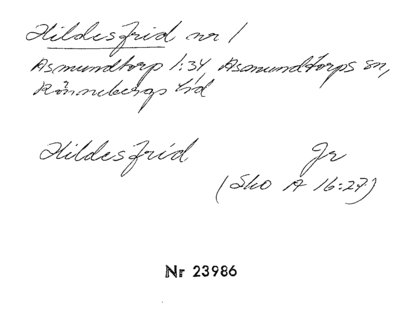 Hildesfrid nr 1
Asmundtorp 1:34, Asmundtorps sn,
Rönnebergs hd
Hildesfrid Jr
(Sko A 16:27)
Nr 23986